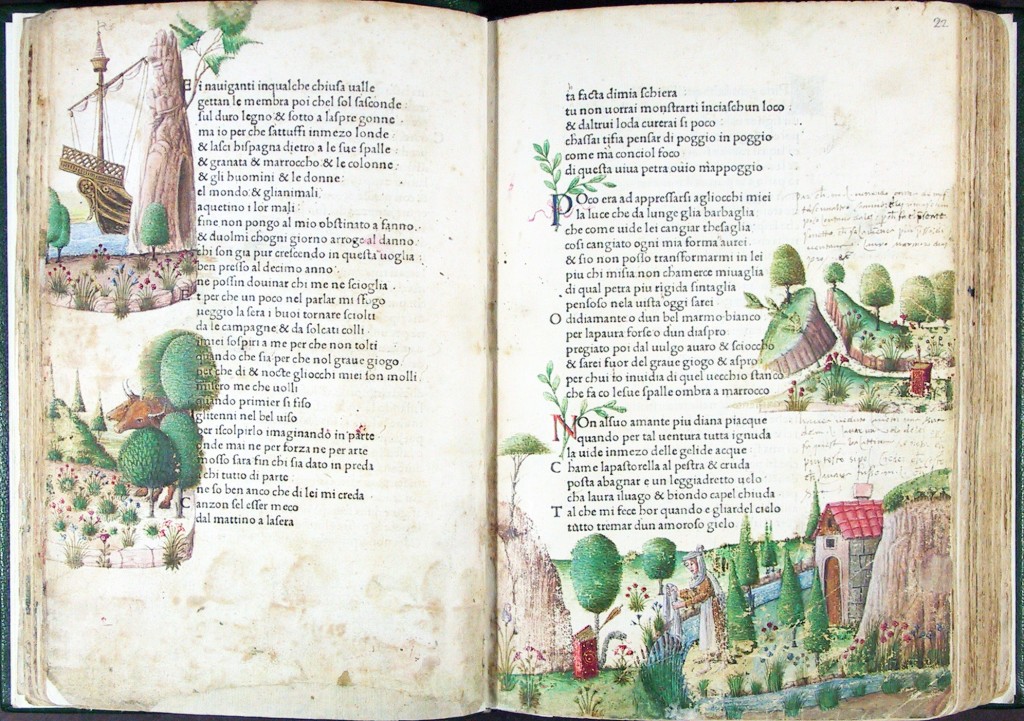 E i nauiganti inqualche chiusa ualle
gettan le membra poi chel sol sasconde
sul duro legno & sotto a laspre gonne
ma io per che sattuffi inmezo londe
& lasci hispagna dietro a le sue spalle
& granata & marroccho & le colonne
& gli huomini & le donne
el mondo & glianimali
aquetino i lor mali
fine non pongo al mio obstinato affanno
& duolmi chogni giorno arroge al danno
chi son gia pur crescendo in questa uoglia
ben presso al decimo anno
ne possin douinar chi me ne scioglia
E t per che un poco nel parlar mi sfogo
ueggio la sera i buoi tornare sciolti
da le campagne & da solcati colli
imiei sospiri a me per che non tolti
quando che sia per che nol graue giogo
per che di & nocte gliocchi miei son molli
misero me che uolli
quando primier si fiso
glitenni nel bel uiso
per iscolpirlo imaginando in parte
onde mai ne per forza ne per arte
mosso sara fin chi sia dato in preda
a chi tutto di parte
ne so ben anco che di lei mi creda
C anzon sel esser meco
dal mattino a lasera
22
ta facta dimia schiera
tu non uorrai monstrarti inciaschun loco
& daltrui loda curerai si poco
chassai tifia pensar di poggio in poggio
come ma conciol foco
di questa uiua petra ouio mappoggio
POco era ad appressarsi agliocchi miei
la luce che da lunge glia barbaglia
che come uide lei cangiar thesaglia
cosi cangiato ogni mia forma aurei
& sio non posso transformarmi in lei
piu chi misia non chamerce miuaglia
di qual petra piu rigida sintaglia
pensoso nela uista oggi sarei
O didiamante o dun bel marmo bianco
per lapaura forse o dun diaspro
pregiato poi dal uulgo auaro & scioccho
& sarei fuor del graue giogo & aspro
per chui io inuidia di quel uecchio stanco
che fa co lesue spalle ombra a marrocco
NOn alsuo amante piu diana piacque
quando per tal uentura tutta ignuda
la uide inmezo delle gelide acque
C hame lapastorella al pestra & cruda
posta abagnar e un leggiadretto uelo
cha laura iluago & biondo capel chiuda
T al che mi fece hor quando e gliardel cielo
tutto tremar dun amoroso gielo